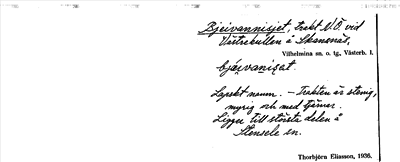 Bjeivannisjet, trakt N.Ö. vid
Västrekullen å Skansnäs,
Vilhelmina sn. o. tg., Västerb. l.
bjæivaniṣat.
Lapskt namn. – Trakten är stenig,
myrig och med tjärnar.
Ligger till största delen å
Stensele sn.
Thorbjörn Eliasson, 1936.